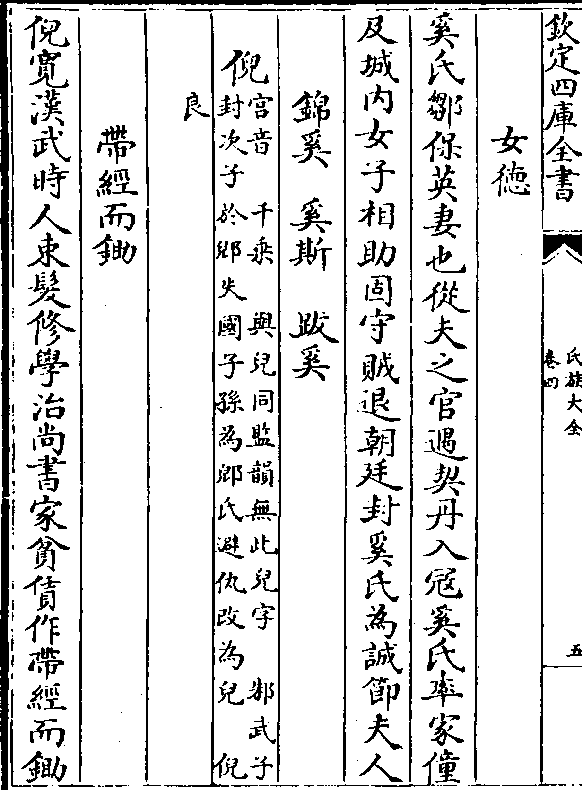 欽定四庫全書
氏族大全
卷四
五
女徳
奚氏鄒保英妻也從夫之官遇契丹入寇奚氏率家僮
及城内女子相助固守賊退朝廷封奚氏為誠節夫人
錦奚　奚斯　跋奚
倪
宫音　千乘　與兒同監韻無此兒字　郳武子
封次子於郳失國子孫為郳氏避仇改為兒　倪
良
帶經而鋤
倪寛漢武時人束髮修學治尚書家貧賃作帶經而鋤